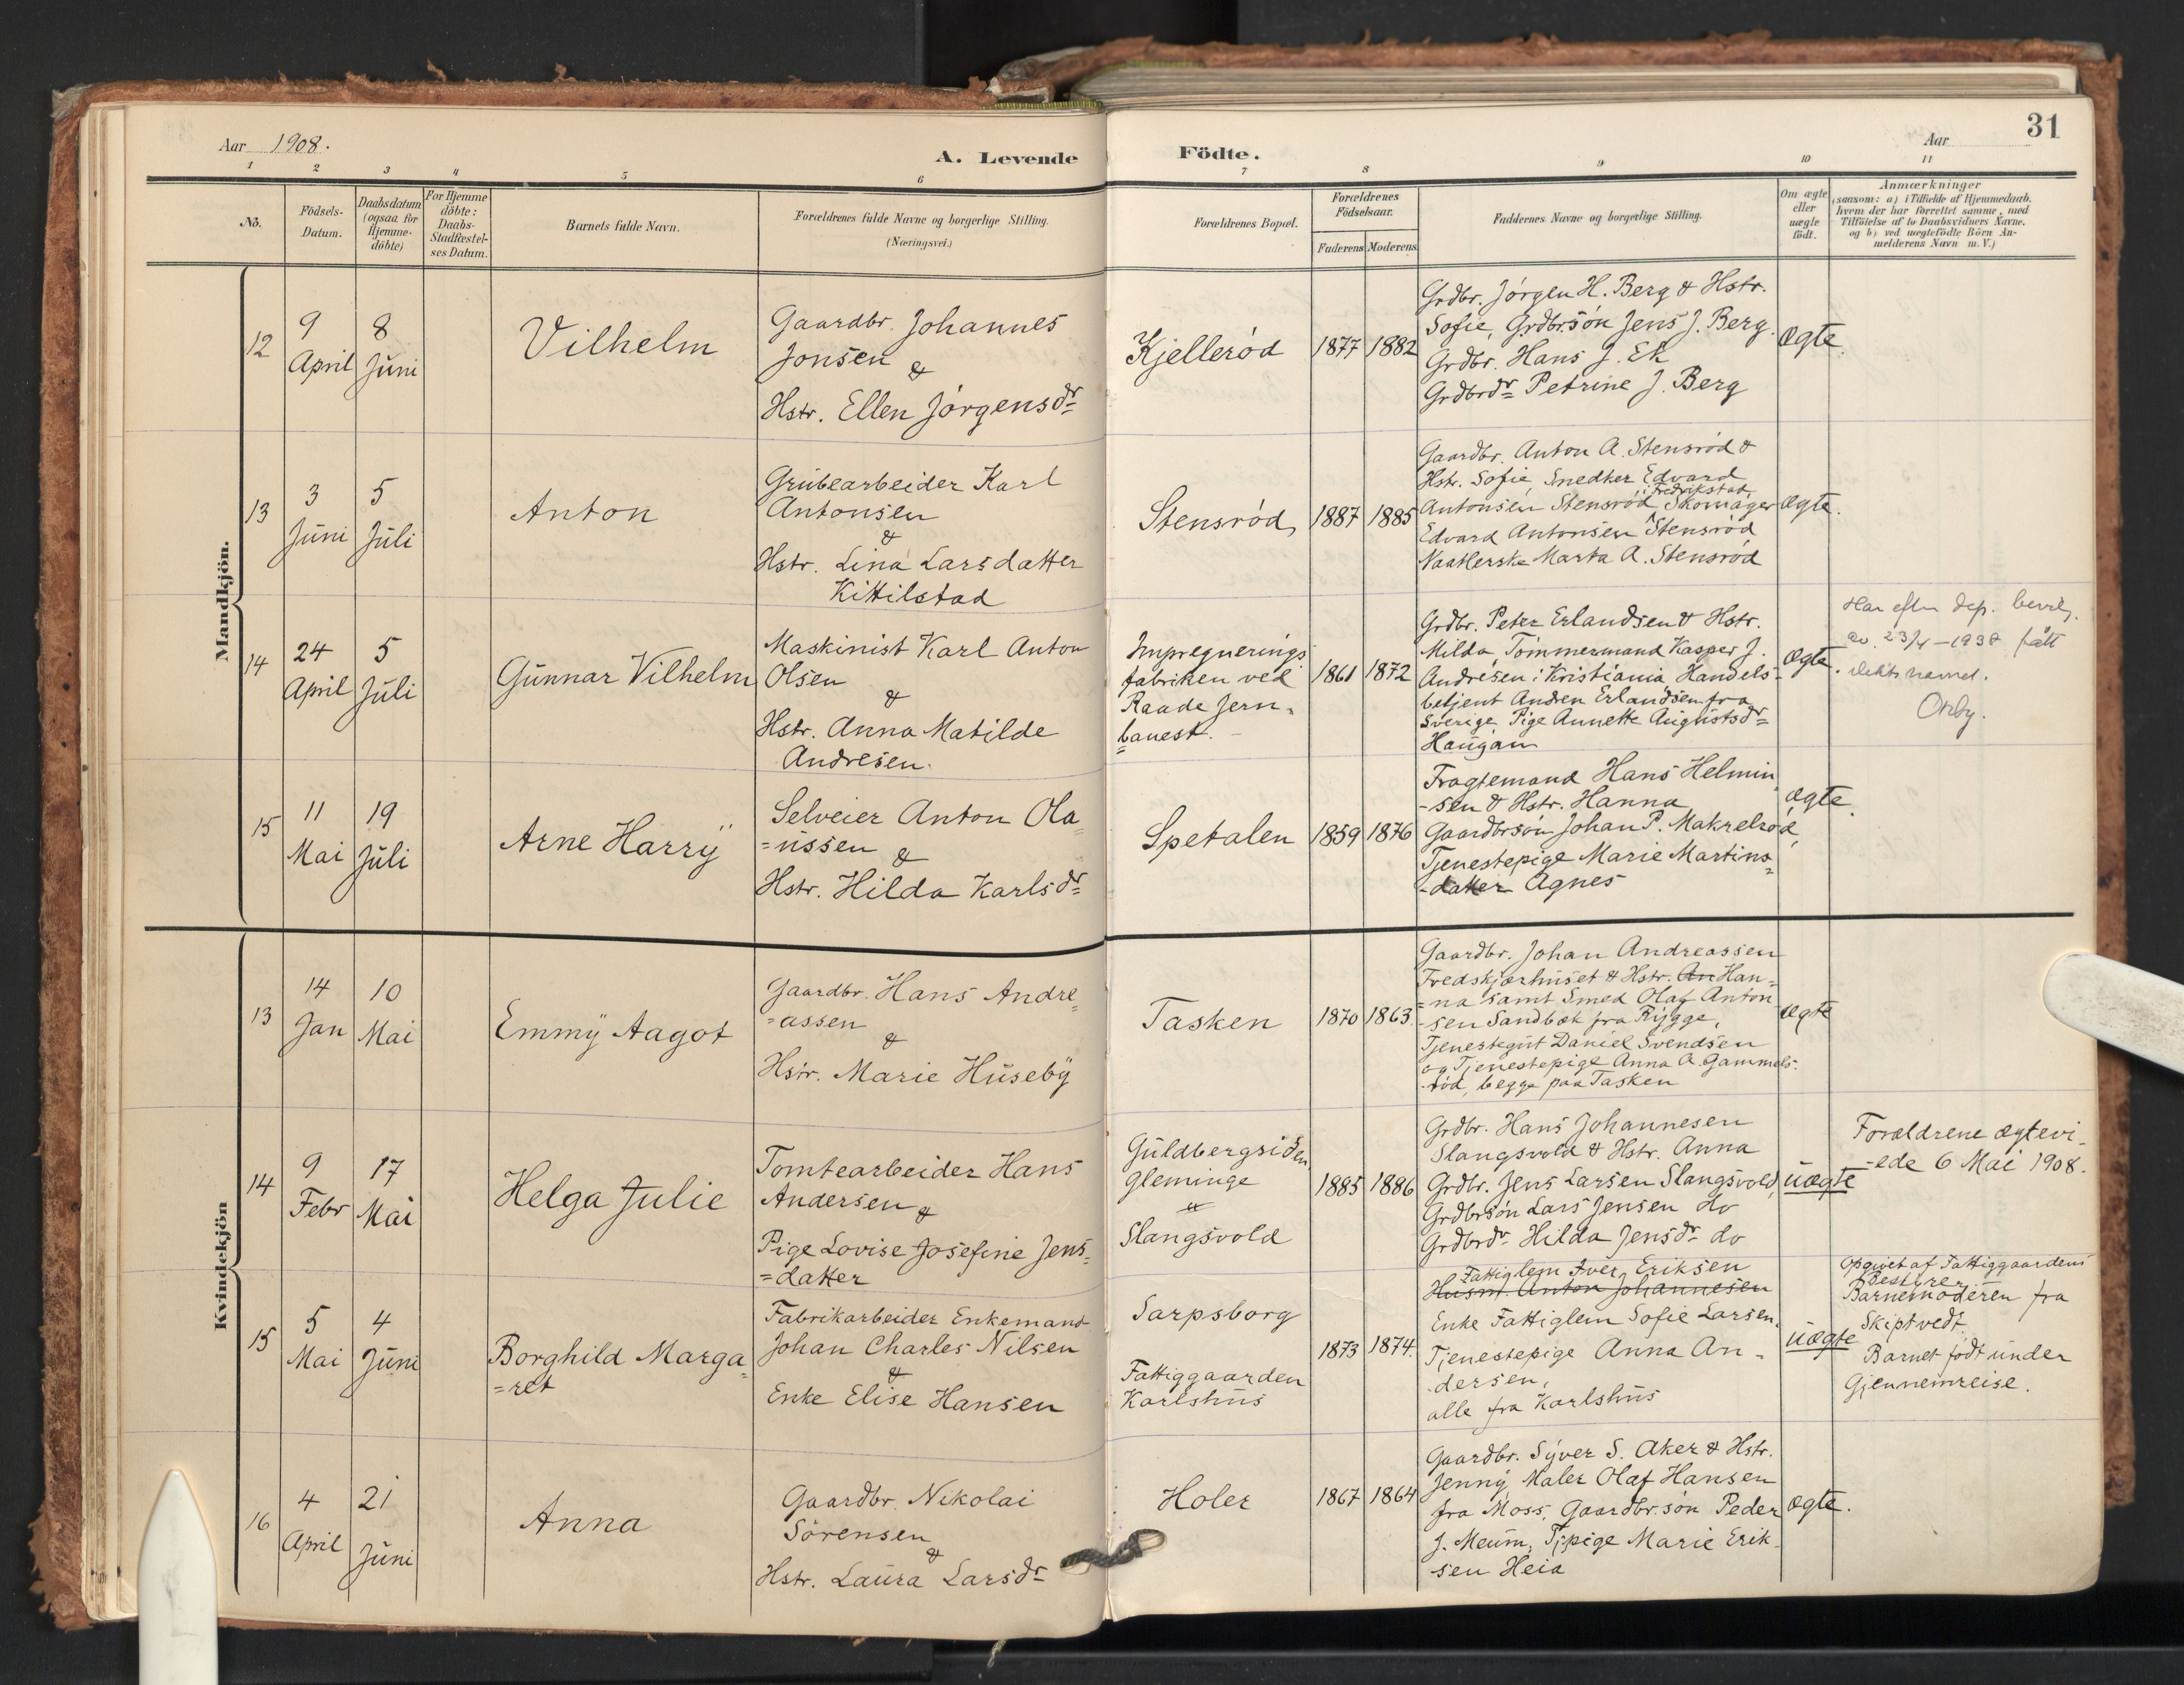 Aar 1908.
A. Levende Födte.
Aar
31
1
2
3
4
5
6
7
8
9
10
11
No.
Födsels-
Datum.
Daabsdatum
(ogsaa for
Hjemme-
döbte)
For Hjemme
döbte:
Daabs-
Stadfæstel-
ses Datum.
Barnets fulde Navn.
Forældrenes fulde Navne og borgerlige Stilling.
(Næringsvei.)
Forældrenes Bopæl.
Forældrenes
Födselsaar.
Faderens
Moderens
Faddernes Navne og borgerlige Stilling.
Om ægte
eller
uægte
födt.
Anmærkninger
(saasom: a) i Tilfælde af Hjemmedaab.
hvem der har forrettet samme, med
Tilföielse af to Daabsvidners Navne.
og b) ved uægtefödte Börn An-
melderens Navn m. V.)
Mandkjön.
12
9
April
8
Juni
Vilhelm
Gaardbr. Johannes
Jonsen
&
Hstr. Ellen Jörgensdr
Kjelleröd
1877
1882
Grdbr. Jörgen H. Berg & Hstr.
Sofie, Grdbrsön Jens J. Berg.
Grdbr. Hans J. Ek
Grdbrdr Petrine J. Berg
ægte.
13
3
Juni
5
Juli
Anton
Grubearbeider Karl
Antonsen
&
Hstr. Lina Larsdatter
Kittilstad
Stensröd,
1887
1885
Gaardbr. Anton A. Stensröd &
Hstr. Sofie, Snedker Edvard
Antonsen Stensröd i Fredrikstad, Skomager
Edvard Antonsen Stensröd
Marta A. Stensröd
ægte.
14
24
April
5
Juli
Gunnar Vilhelm
Maskinist Karl Anton
Olsen
&
Hstr. Anna Matilde
Andresen.
Imprægnerings
fabriken ved
Raade Jern-
=banest.
1861
1872
Grdbr. Peter Erlandsen & Hstr.
Milda, Tömmermand Kasper J.
Andresen i Kristiania, Handels-
betjent Andren Erlandsen fra
Sverige, Pige Annette Augustsdr
Haugan
ægte.
Har efter dep. bevilg.
av 23/4-1938 fått
navnet.
15
11
Mai
19
Juli
Arne Harry
Selveier Anton Ola
=ussen
&
Hstr. Hilda Karlsdr
Spetalen
1859
1876
Fragtemand Hans Helmin
-sen & Hstr. Hanna,
Gaardbrsön Johan P. Makrelröd,
Tjenestepige Marie Martins-
-datter Agnes
ægte.
Kvindekjön
13
14
Jan
10
Mai
Emmy Aagot
Gaardbr. Hans Andre
=assen
&
Hstr. Marie Huseby
Tasken
1870
1863
Gaardbr. Johan Andreassen
Fredskjærhuset & Hstr. An Han-
=na samt Smed Olaf Anton
-sen Sandbæk fra Rygge,
Tjenestegut Daniel Svendsen
og Tjenestepige Anna A. Gammels-
röd, begge paa Tasken
ægte
14
9
Febr
17
Mai
Helga Julie
Tomtearbeider Hans
Andersen
&
Pige Lovise Josefine Jens-
=datter
Guldbergsiden
Gleminge
&
Slangsvold
1885
1886
Grdbr. Hans Johannesen
Slangsvold & Hstr. Anna
Grdbr. Jens Larsen Slangsvold,
Grdbrsön Lars Jensen do
Grdbrdr Hilda Jensdr do
uægte
Forældrene ægtevi-
-ede 6 Mai 1908.
15
5
Mai
4
Juni
Borghild Marga
=ret
Fabrikarbeider Enkemand
Johan Charles Nilsen
&
Enke Elise Hansen
Sarpsborg
Fattiggaarden
Karlshus
1873
1874.
Fattiglem Iver Eriksen
Husm. Anton Johannesen
Enke Fattiglem Sofie Larsen,
Tjenestepige Anna An-
-dersen,
alle fra Karlshus
uægte
Opgivet af Fattiggaardens
Bestyrer
Barnemoderen fra
Skiptvedt.
Barnet födt under
Gjennemreise.
16
4
April
21
Juni
Anna
Gaardbr. Nikolai
Sörensen
&
Hstr. Laura Larsdr
Holer
1867
1864
Gaardbr. Syver S. Aker & Hstr.
Jenny, Maler Olaf Hansen
fra Moss, Gaardbr.sön Peder
J. Meum, Tjpige Marie Erik-
sen Heia
ægte.